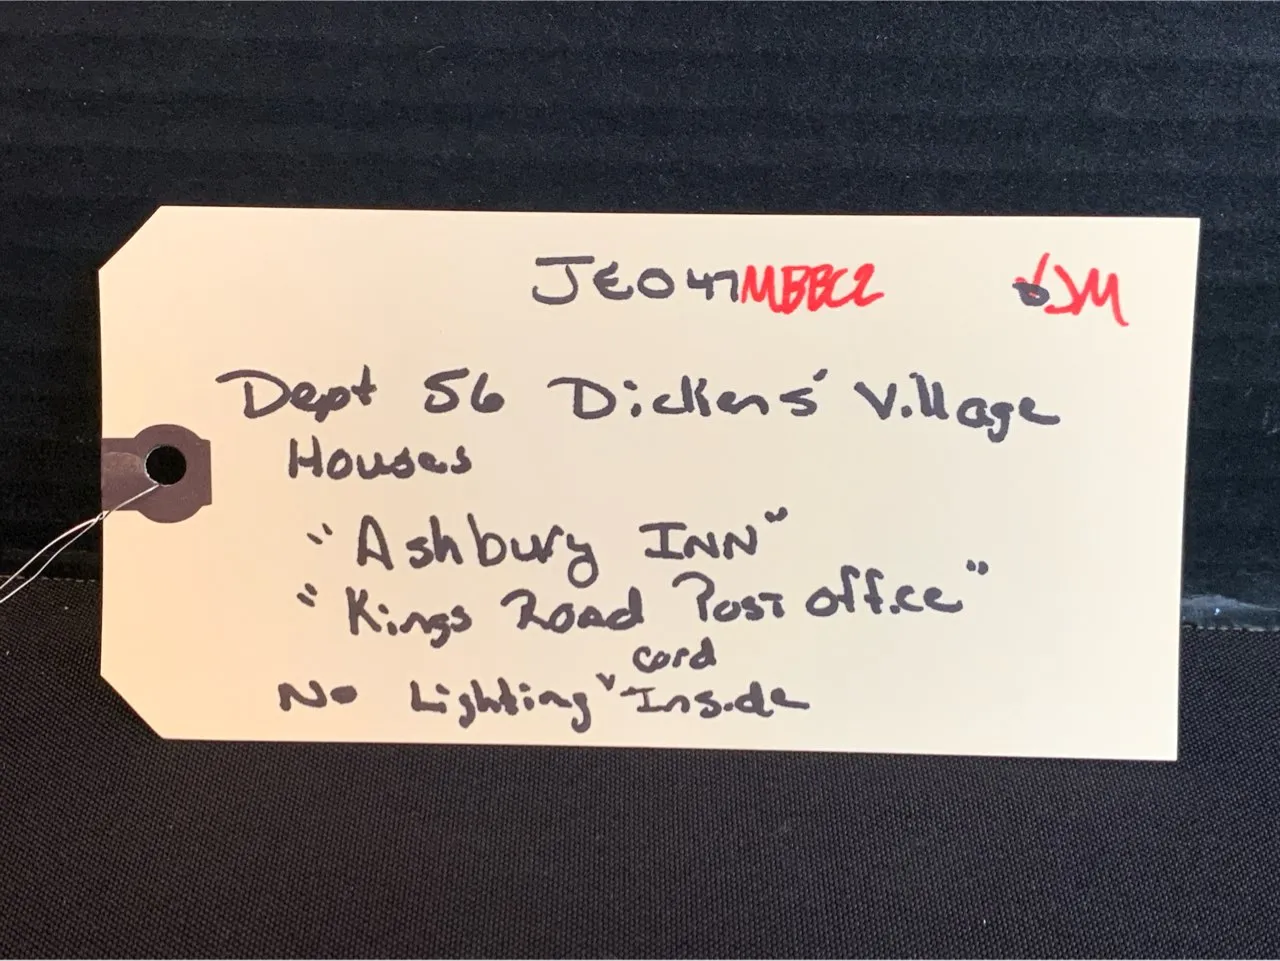 JE047MBBC2 JM
Dept 56 Dickens' Village
Houses
"Ashbury INN"
"Kings Road Post office"
cord
No Lighting ˅ Inside